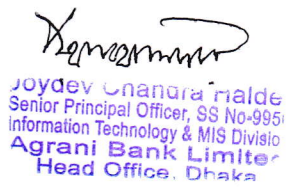 Joydev Chandra Halde
Senior Principal Officer, SS No-995
Information Technology & MIS Divisio
Agrani Bank Limite
Head Office, Dhaka